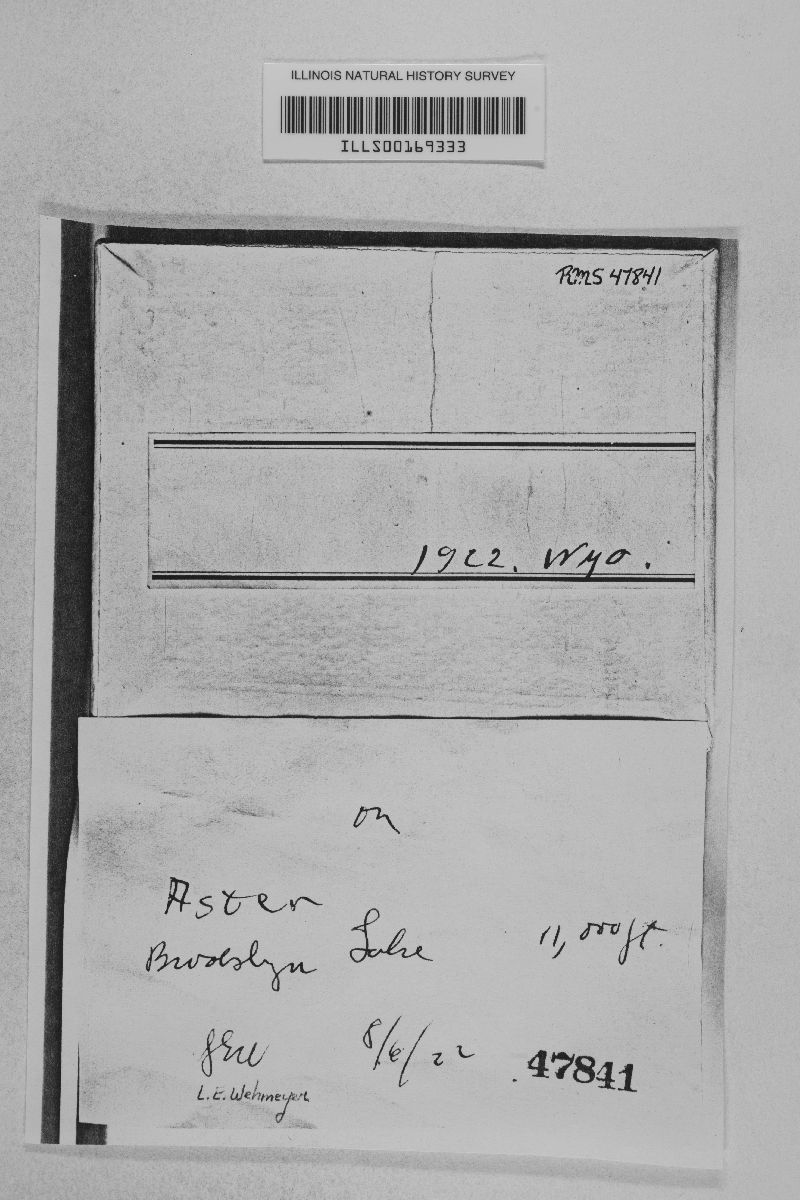 ILLINOIS NATURAL HISTORY SURVEY
ILLS00169333
RMS 47841
1922. Wyo.
on
Aster
Brooklyn Lake 11,000 ft.
LEW 8/6/22
47841
L. E. Wehmeyer